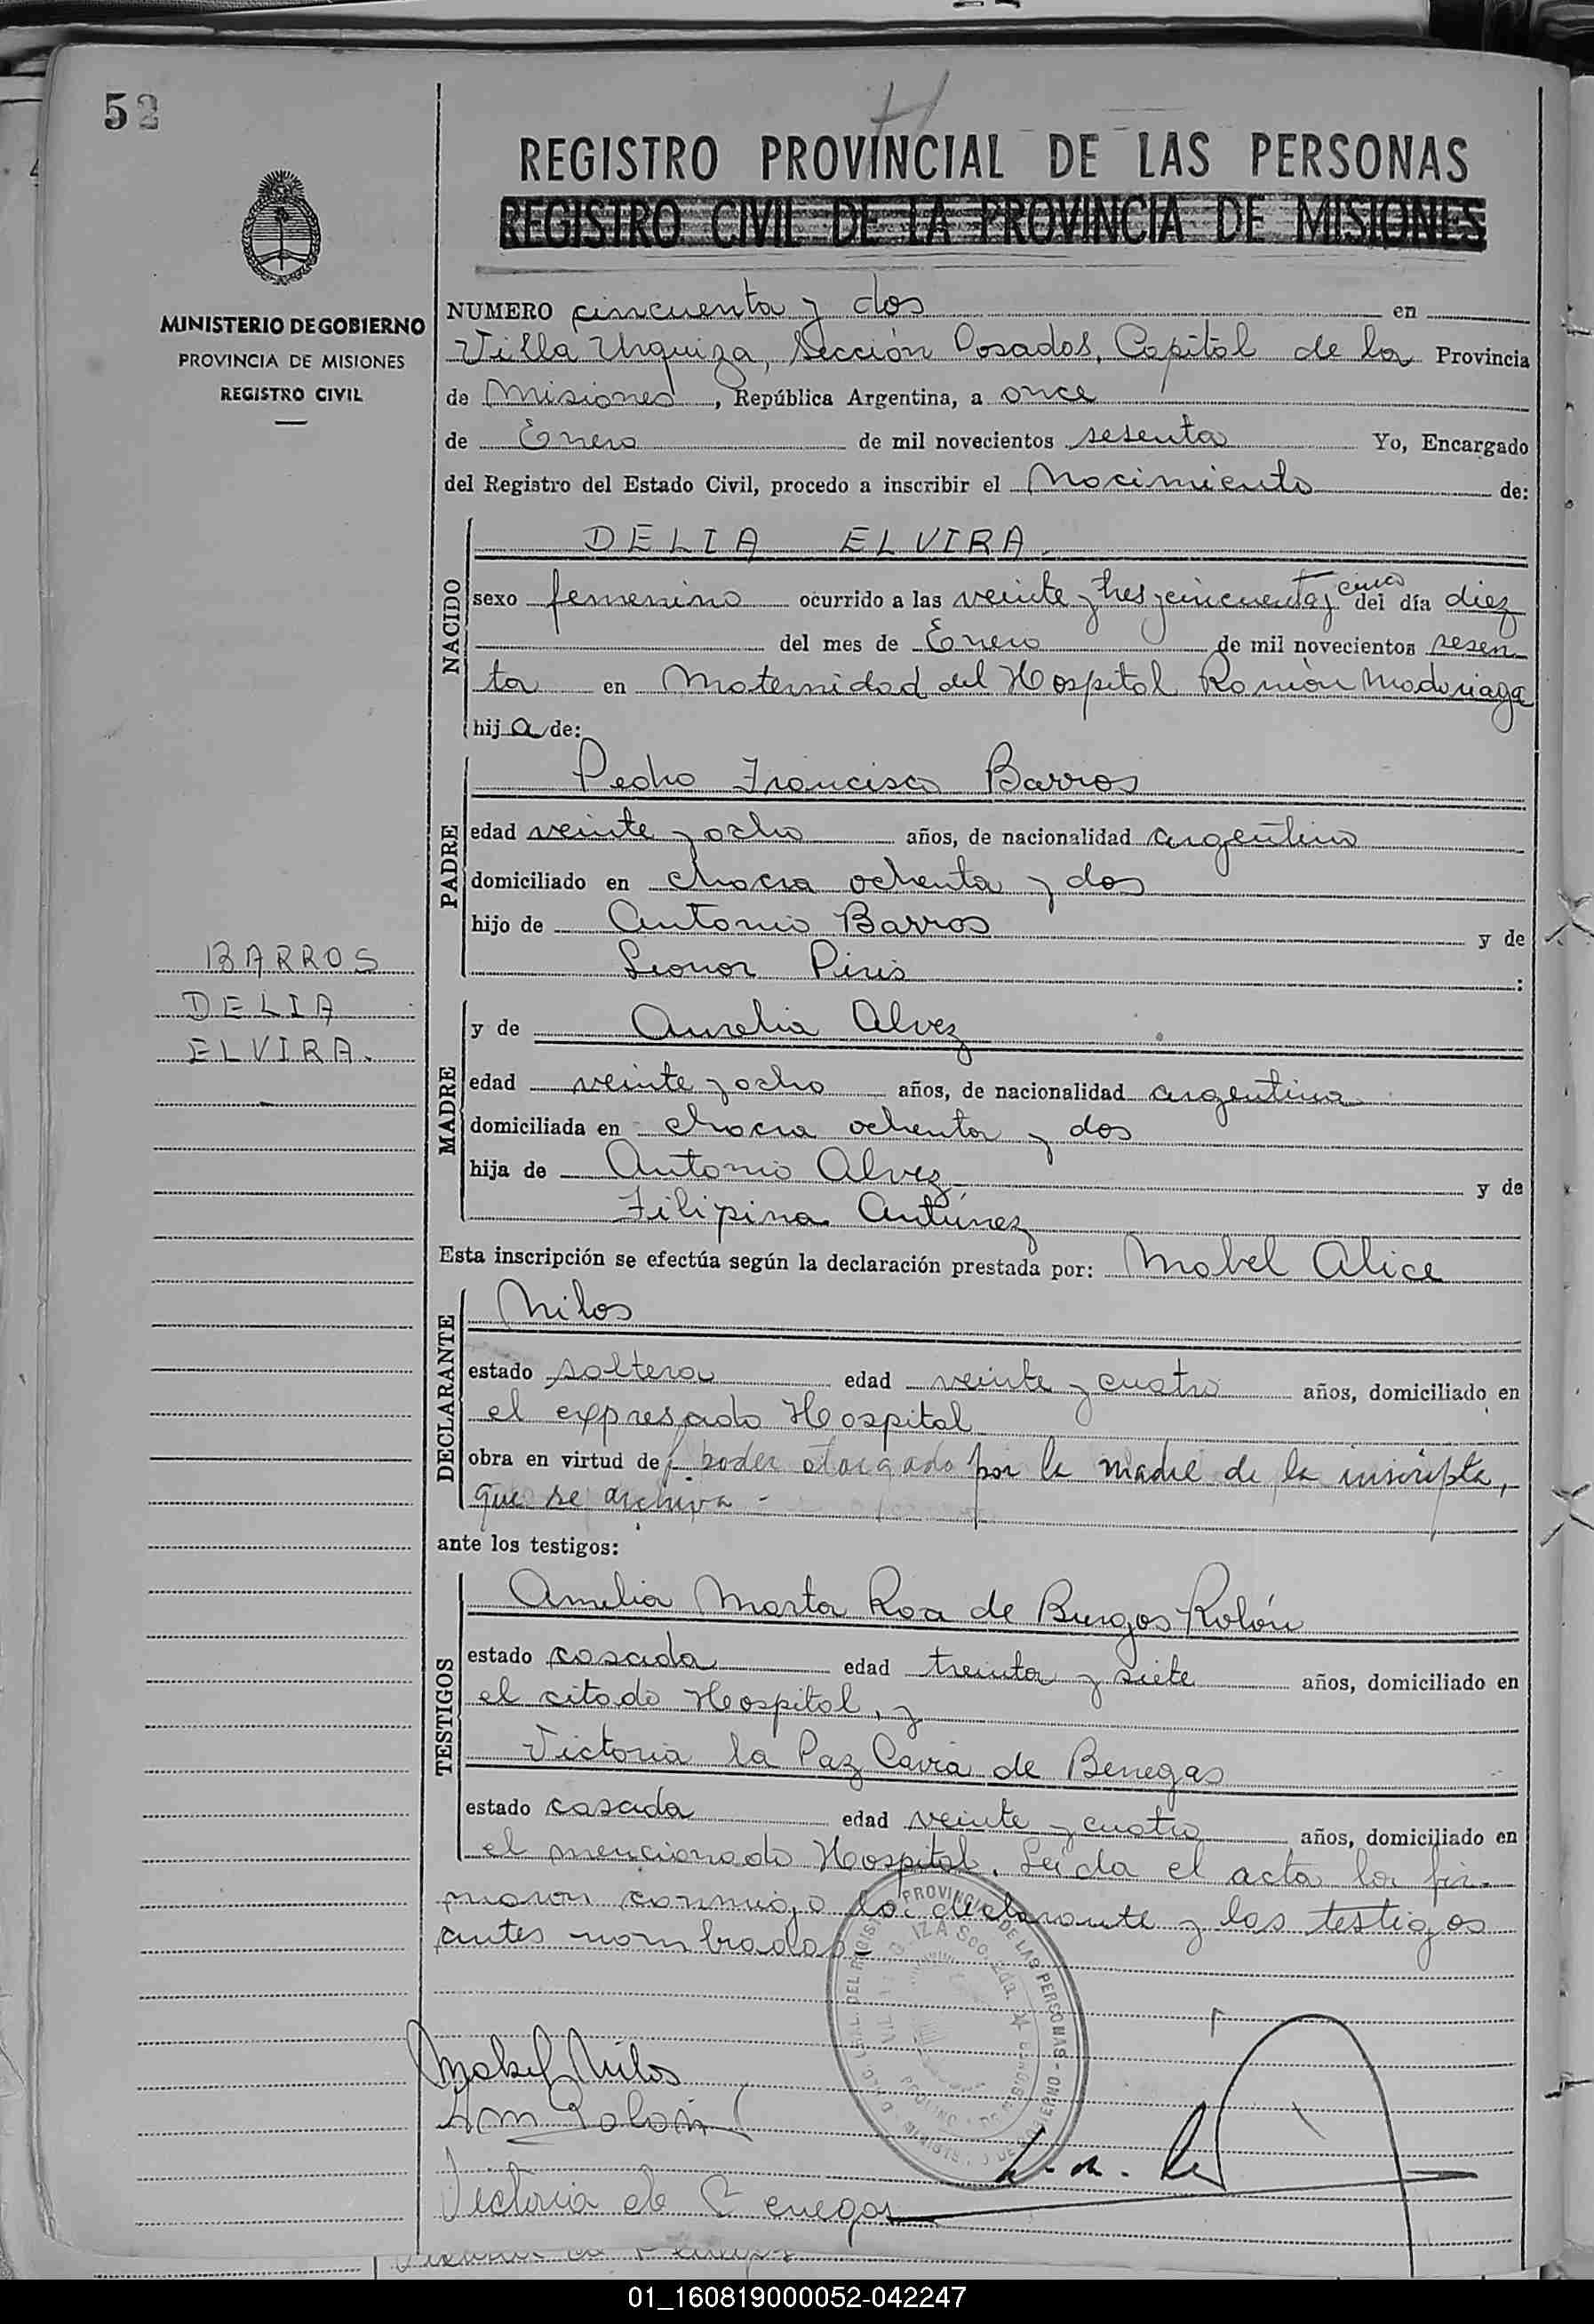 52
REGISTRO PROVINCIAL DE LAS PERSONAS
REGISTRO CIVIL DE LA PROVINCIA DE MISIONES
MINISTERIO DE GOBIERNO
PROVINCIA DE MISIONES
REGISTRO CIVIL
NUMERO cincuenta y dos en
Villa Urquiza, Sección Posadas, Capital de la Provincia
de Misiones, República Argentina, a once
de Enero de mil novecientos sesenta Yo, Encargado
del Registro del Estado Civil, procedo a inscribir el Nacimiento de:
NACIDO
DELIA ELVIRA.
sexo femenino ocurrido a las veinte y tres y cincuenta y cinco del día diez
del mes de Enero de mil novecientos sesen
ta en Maternidad del Hospital Ramón Madariaga
hij a de:
PADRE
Pedro Francisco Barros
edad veinte y ocho años, de nacionalidad argentino
domiciliado en chacra ochenta y dos
hijo de Antonio Barros y de
Leonor Piris :
BARROS
DELIA
ELVIRA.
MADRE
y de Aurelia Alvez
edad veinte y ocho años, de nacionalidad argentina
domiciliada en chacra ochenta y dos
hija de Antonio Alvez y de
Filipina Antúnez
Esta inscripción se efectúa según la declaración prestada por: Mabel Alice
DECLARANTE
Milos
estado soltera edad veinte y cuatro años, domiciliado en
el expresado Hospital
obra en virtud de poder otorgado por la madre de la inscripta,
que se archiva -
ante los testigos:
TESTIGOS
Amelia Marta Roa de Burgos Rolón
estado casada edad treinta y siete años, domiciliado en
el citado Hospital, y
Victoria la Paz Cavia de Benegas
estado casada edad veinte y cuatro años, domiciliado en
el mencionado Hospital. Leida el acta la fir-
maron conmigo la declarante y los testigos
antes nombrados -
PROVINCIAL DE LAS PERSONAS
Mabel Milos
A m Rolón
Victoria de Benegas
01_160819000052-042247